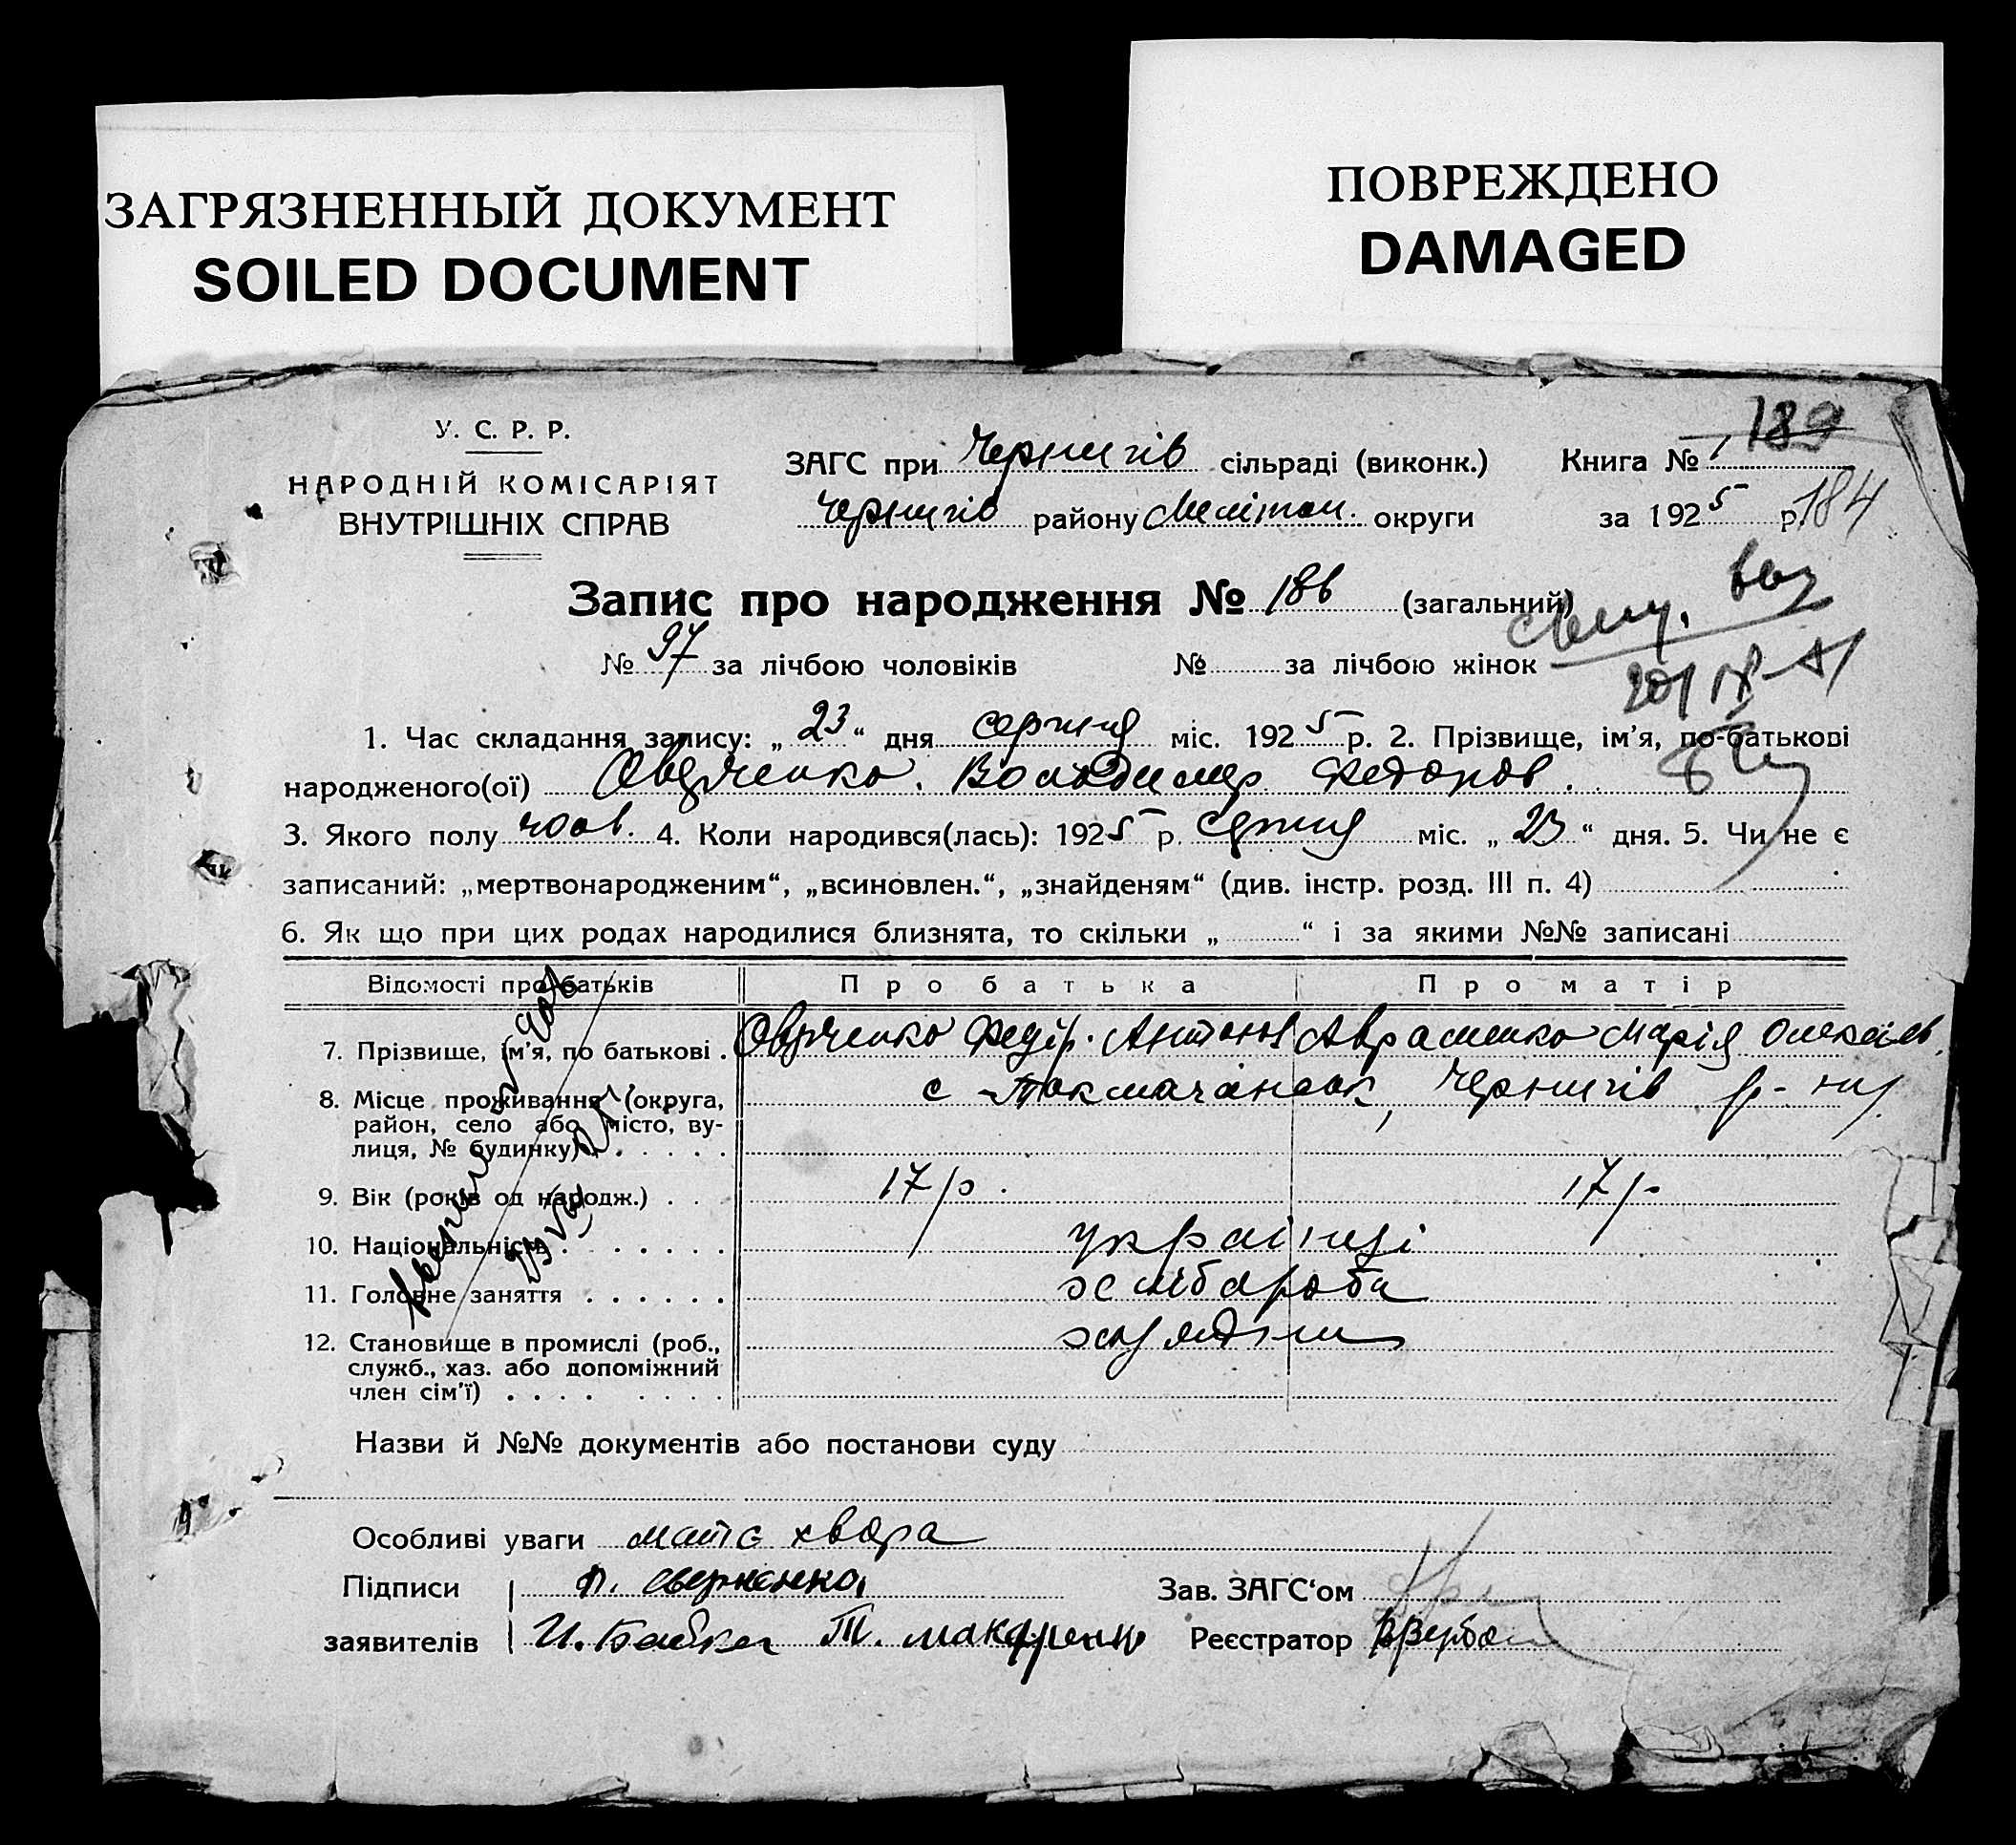 ЗАГРЯЗНЕННЫЙ ДОКУМЕНТ
SOILED DOCUMENT
ПОВРЕЖДЕНО
DAMAGED
У. С. Р. Р.
НАРОДНІЙ КОМІСАРІЯТ
ВНУТРІШНІХ СПРАВ
ЗАГС при Чернигів сільраді (виконк.)
Чернигів району Мелітоп. округи
Книга № 1 189
за 1925 р. 184
Запис про народження № 186 (загальний)
№ 97 за лічбою чоловіків № за лічбою жінок
1. Час складання запису: „23“ дня серпня міс. 1925 р. 2. Прізвище, ім'я, по-батькові
народженого(ої) Володимир Федоров.
3. Якого полу чолов. 4. Коли народився(лась): 1925 р. серпня міс. „23“ дня. 5. Чи не є
записаний: „мертвонародженим“, „всиновлен.“, „знайденям“ (див. інстр. розд. III п. 4)
6. Як що при цих родах народилися близнята, то скільки „ “ і за якими №№ записані
Відомості про батьків Про батька Про матір
7. Прізвище, ім'я, по батькові . Федір. Антонов Авраменко Марія
8. Місце проживання (округа,
район, село або місто, ву-
лиця, № будинку) . . . . . с Токмачанськ, Чернигів р-ну
9. Вік (років од народж.) . . 17 р. 17 р.
10. Національність . . . . . . українці
11. Головне заняття . . . . . . хліборобы
12. Становище в промислі (роб.,
служб., хаз. або допоміжний
член сім'ї) . . . .
Назви й №№ документів або постанови суду
Особливі уваги мати хвора
Підписи
Зав. ЗАГС'ом
заявителів И. Бабка Т. Макаренко Реєстратор